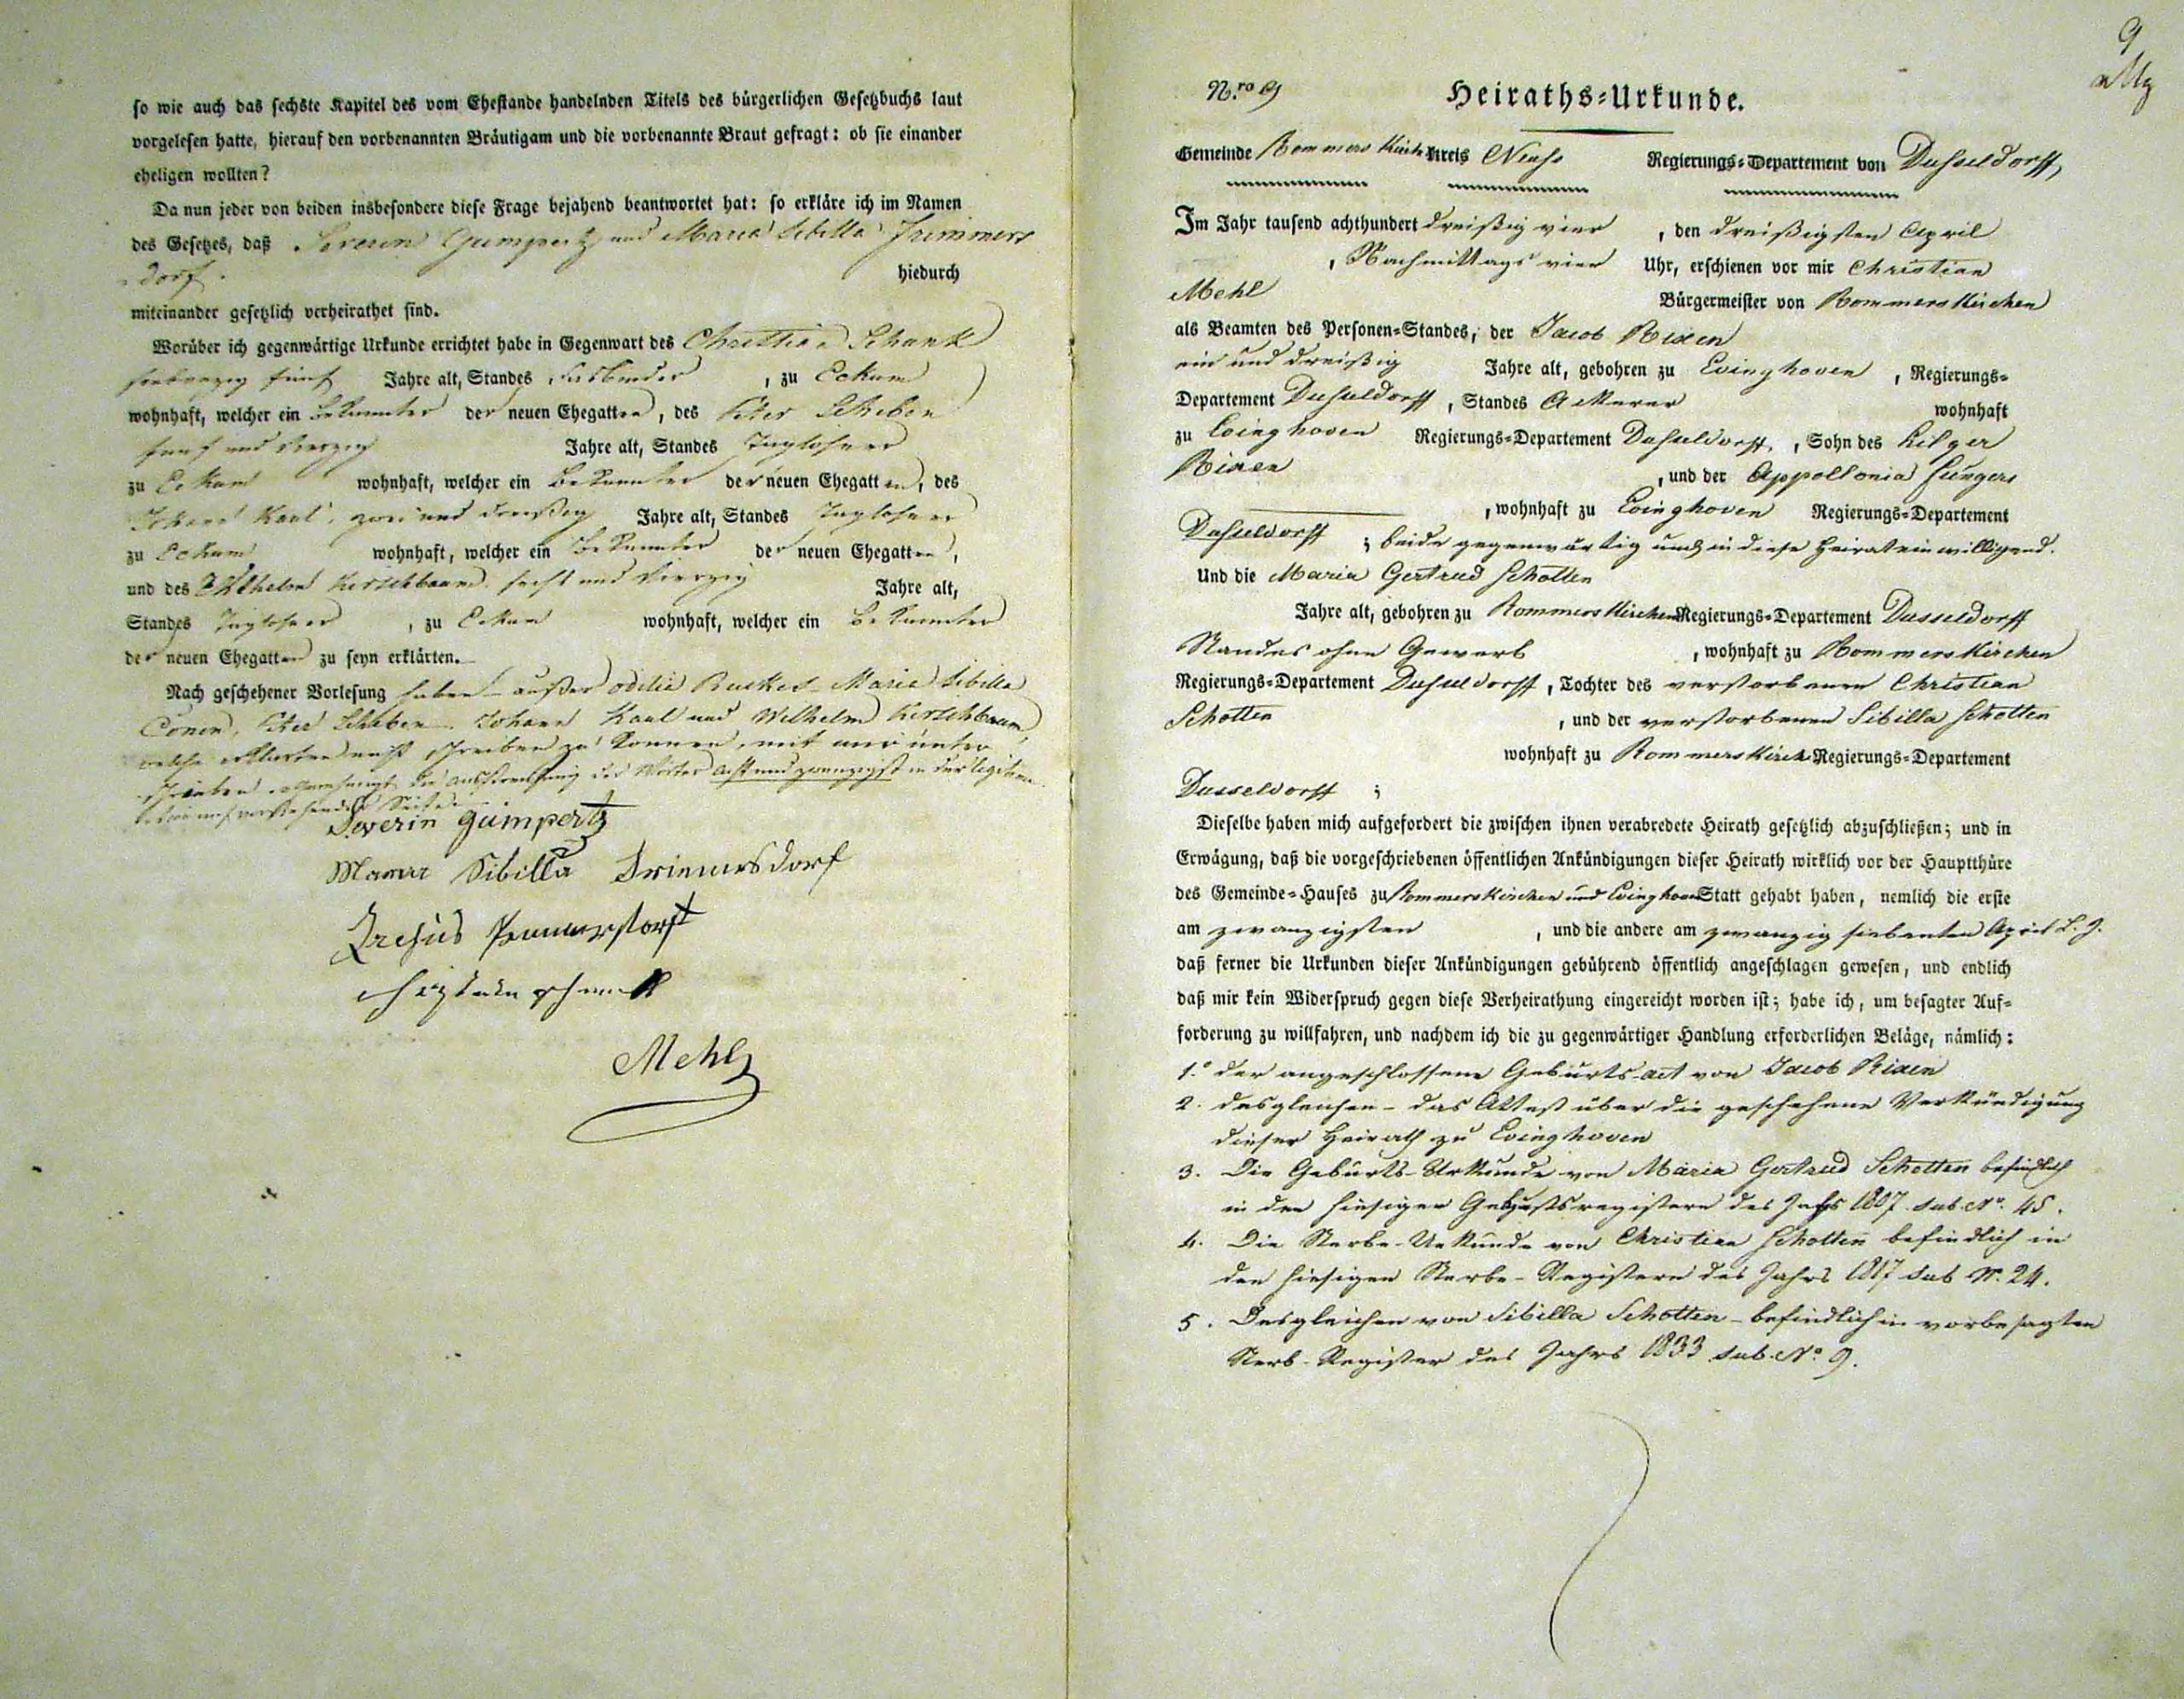 so wie auch das sechste Kapitel des vom Ehestande handelnden Titels des bürgerlichen Gesetzbuchs laut
vorgelesen hatte, hierauf den vorbenannten Bräutigam und die vorbenannte Braut gefragt: ob sie einander
eheligen wollten?
Da nun jeder von beiden insbesondere diese Frage bejahend beantwortet hat: so erkläre ich im Namen
des Gesetzes, daß Severin Gumpertz und Maria Sibilla Frimmers
dorf. hiedurch
miteinander gesetzlich verheirathet sind.
Worüber ich gegenwärtige Urkunde errichtet habe in Gegenwart des Christian Schank
fünf Jahre alt, Standes Fasbinder, zu Eckum
wohnhaft, welcher ein Bekannter der neuen Ehegatten, des Peter Scheben
fünf und vierzig Jahre alt, Standes Taglohner
zu Eckum wohnhaft, welcher ein Bekannter der neuen Ehegatten, des
Johann Kaul, zwei und dreißig Jahre alt, Standes Taglohner
zu Eckum wohnhaft, welcher ein Bekannter der neuen Ehegatten,
und des Wilhelm Kirschbaum, sechs und vierzig Jahre alt,
Standes Taglohner, zu Eckum wohnhaft, welcher ein Bekannter
der neuen Ehegatten zu seyn erklärten.
Nach geschehener Vorlesung haben außer Odilia Maria Sibilla
Conen, Peter Scheben, Johann Kaul und Wilhelm Kirschbaum,
welche erklärten nicht schreiben zu können, mit mir unter
schrieben. der Wörter acht und zwanzigst in der
Severin Gumpertz
Maria Sibilla Frimersdorf
Mehl
9
N.ro 9 Heiraths-Urkunde.
Gemeinde Rommerskirchen Kreis Neuss Regierungs-Departement von Dusseldorff,
Im Jahr tausend achthundert dreißig vier, den dreißigsten April
, Nachmittags vier Uhr, erschienen vor mir Christian
Mehl Bürgermeister von Rommerskirchen
als Beamten des Personen-Standes, der Jacob Rixen
ein und dreißig Jahre alt, gebohren zu Evinghoven, Regierungs-
Departement Dusseldorff, Standes Ackerer wohnhaft
zu Evinghoven Regierungs-Departement Dusseldorff, Sohn des Hilger
Rixen, und der Appollonia Jüngers
, wohnhaft zu Evinghoven Regierungs-Departement
Dusseldorff; beide gegenwärtig und in diese Heirat einwilligend.
Und die Maria Gertrud Schotten
Jahre alt, gebohren zu Rommerskirchen Regierungs-Departement Dusseldorff
Standes ohne Gewerb, wohnhaft zu Rommerskirchen
Regierungs-Departement Dusseldorff, Tochter des verstorbenen Christian
Schotten, und der verstorbenen Sibilla Schotten
wohnhaft zu Rommerskirch Regierungs-Departement
Dusseldorff;
Dieselbe haben mich aufgefordert die zwischen ihnen verabredete Heirath gesetzlich abzuschließen; und in
Erwägung, daß die vorgeschriebenen öffentlichen Ankündigungen dieser Heirath wirklich vor der Hauptthüre
des Gemeinde-Hauses zu Rommerskirchen und Evinghoven Statt gehabt haben, nemlich die erste
am zwanzigsten, und die andere am zwanzig siebenten April l. J.
daß ferner die Urkunden dieser Ankündigungen gebührend öffentlich angeschlagen gewesen, und endlich
daß mir kein Widerspruch gegen diese Verheirathung eingereicht worden ist; habe ich, um besagter Auf-
forderung zu willfahren, und nachdem ich die zu gegenwärtiger Handlung erforderlichen Beläge, nämlich:
1.° der angeschlossene Geburts-act von Jacob Rixen
2. desgleichen - das Attest über die geschehene Verkündigung
dieser Heirath zu Evinghoven
3. Die Geburts-Urkunde von Maria Gertrud Schotten befindlich
in den hiesigen Geburtsregistern des Jahrs 1807 sub N.° 45.
4. Die Sterbe-Urkunde von Christian Schotten befindlich in
den hiesigen Sterbe-Registern des Jahrs 1817 sub N. 24.
5. Desgleichen von Sibilla Schotten - befindlich in vorbesagten
Sterb-Register des Jahrs 1833 sub N.° 9.